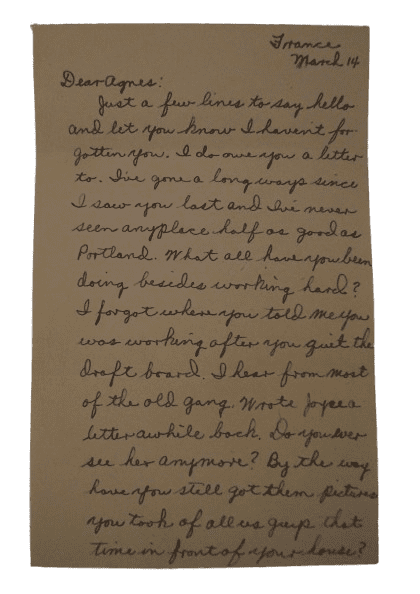 France
March 14
Dear Agnes:
Just a few lines to say hello
and let you know I havent for-
gotten you. I do owe you a letter
to. I've gone a long ways since
I saw you last and I've never
seen anyplace half as good as
Portland. What all have you been
doing besides working hard?
I forgot where you told me you
was working after you quit the
draft board. I hear from most
of the old gang. Wrote Joyce a
letter awhile back. Do you ever
see her anymore? By the way
have you still got them pictures
you took of all us guys that
time in front of your house?